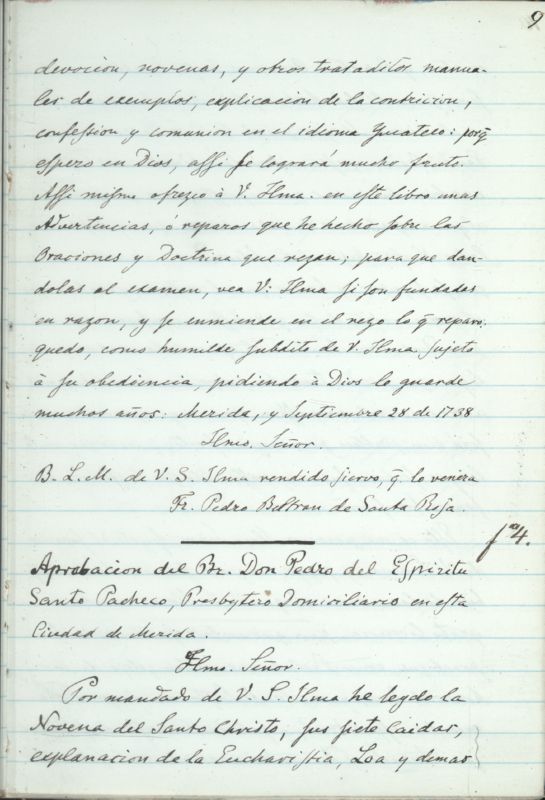 9
devocion, novenas, y otros trataditos manua-
les de exemplos, explicacion de la contricion,
confession y comunion en el idioma Yucateco: porq̃
espero en Dios, assi se logrará mucho fruto.
Assi mismo ofrezco à V. Ilma. en este libro unas
Advertencias, ó reparos que he hecho sobre las
Oraciones y Doctrina que rezan; para que dan-
dolas al examen, vea V: Ilma si son fundadas
en razon, y se enmiende en el rezo lo q̃ reparo.
quedo, como humilde subdito de V. Ilma sujeto
à su obediencia, pidiendo à Dios lo guarde
muchos años: Merida, y Septiembre 28 de 1738
Ilmo. Señor.
B. L. M. de V. S. Ilma rendido siervo, q̃ lo venera
Fr. Pedro Beltran de Santa Rosa.
fº 4.
Aprobacion del Br. Don Pedro del Espiritu
Santo Pacheco, Presbytero Domiciliario en esta
Ciudad de Merida.
Ilmo. Señor.
Por mandado de V. S. Ilma he leydo la
Novena del Santo Christo, sus siete Caidas,
explanacion de la Eucharistia, Loa y demas